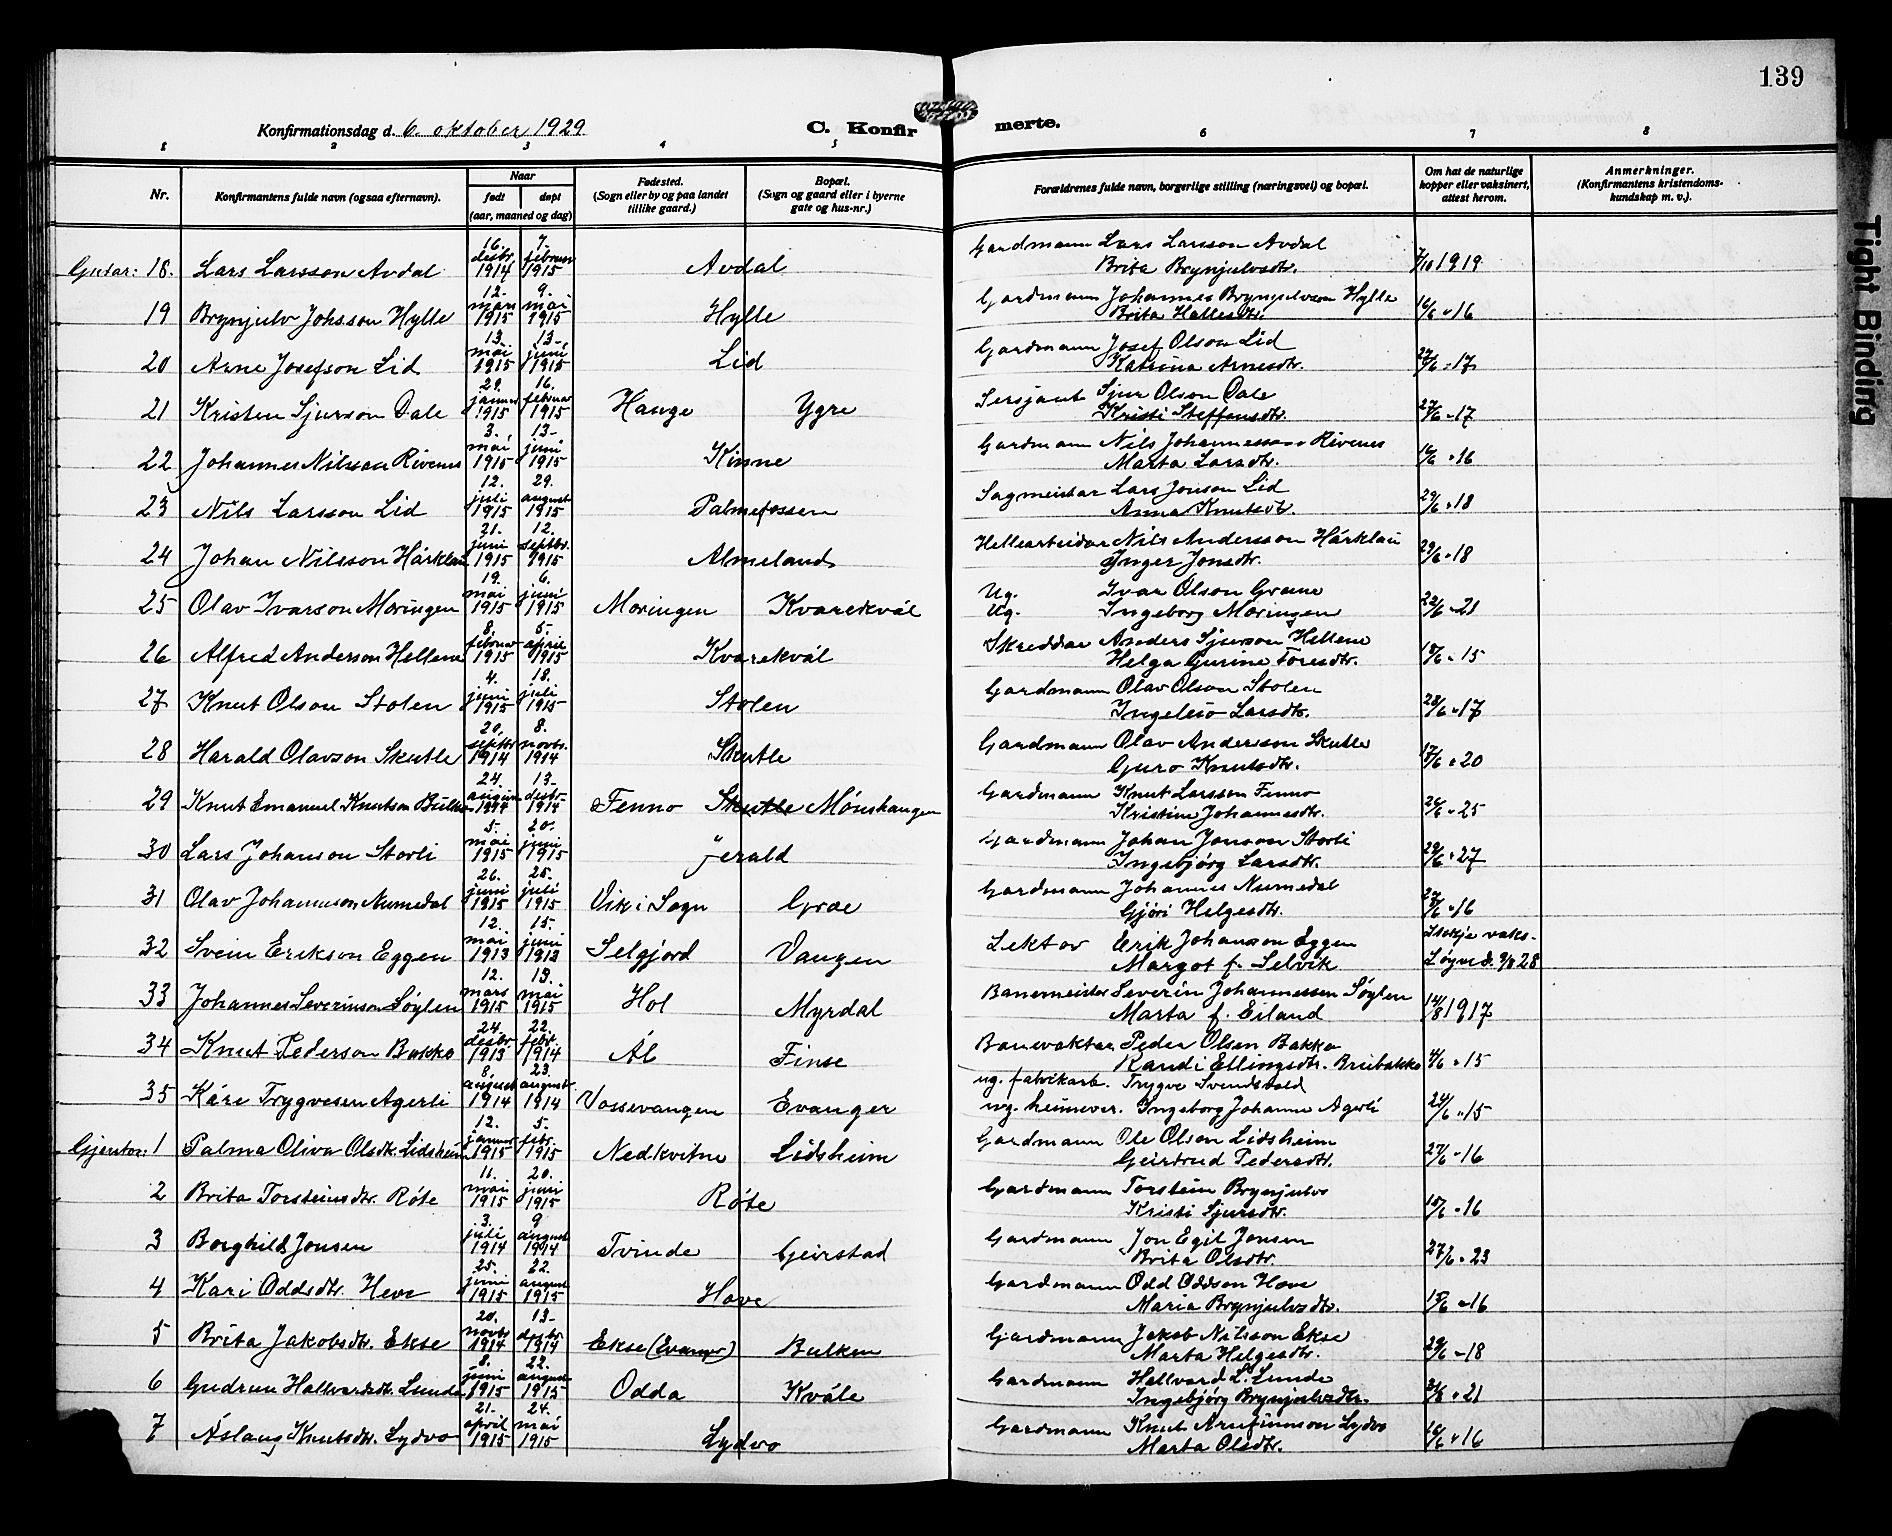 139
Konfirmationsdag d. 6. oktober 1929 C. Konfirmerte.
1 2 3 4 5 6 7 8
Nr. Konfirmantens fulde navn (ogsaa efternavn). Naar født døpt (aar, maaned og dag) Fødested. (Sogn eller by og paa landet tillike gaard.) Bopæl. (Sogn og gaard eller i byerne gate og hus-nr.) Forældrenes fulde navn, borgerlige stilling (næringsvei) og bopæl. Om hat de naturlige kopper eller vaksinert, attest herom. Anmerkninger. (Konfirmantens kristendomskundskap m. v.).
Gutar: 18. Lars Larsson Avdal 16. desbr. 1914 7. februar 1915 Avdal Gardmann Lars Larsson Avdal Brita Brynjulvsdtr. 1919
19 Brynjulv Johsson Hylle 12. mars 1915 9. mai 1915 Hylle Gardmann Johannes Brynjulvson Hylle Brita Hallesdtr. 16/6 " 16
20 Arne Josefson Lid 13. mai 1915 13. juni 1915 Lid Gardmann Josef Olson Lid Katrina Arnesdtr. 27/6 " 17
21 Kristen Sjurson Dale 29. januar 1915 16. februar 1915 Hauge Ygre Sersjant Sjur Olson Dale Kristi Steffensdtr. 27/6 " 17
22 Johannes Nilsson Rivenes 3. mai 1915 13. juni 1915 Kinne Gardmann Nils Johannesson Rivenes Marta Larsdtr. 16/6 " 16
23 Nils Larsson Lid 12. juli 1915 29. august 1915 Palmefossen Sagmeistar Lars Jonson Lid Anna Knutsdtr. 29/6 " 18
24 Johan Nilsson Hárklau 21. juni 1915 12. septbr. 1915 Almeland Hellearbeidar Nils Andersson Hárklau Inger Jonsdtr. 29/6 " 18
25 Olav Ivarson Moringen 19. mai 1915 6. juni 1915 Moringen Kvarekvál Ug. Ivar Olson Græne Ug. Ingeborg Moringen 22/6 " 21
26 Alfred Anderson Hellene 8. februar 1915 5. april 1915 Kvarekvál Skreddar Anders Sjurson Hellene Helga Gurine Toresdtr. 18/6 " 15
27 Knut Olson Stolen 4. juni 1915 18. juli 1915 Stolen Gardmann Olav Olson Stolen Ingeleiv Larsdtr. 28/6 " 17
28 Harald Olavson Skutle 20. septbr. 1914 8. novbr. 1914 Skutle Gardmann Olav Anderson Skutle Guro Knutsdtr. 17/6 " 20
29 Knut Emanuel Knutson Bulko 24. august 1914 13. desbr. 1914 Fenno Skutle Mónshaugen Gardmann Knut Larsson Fenno Kristine Johannesdtr. 26/6 " 25
30 Lars Johanson Storli 5. mai 1915 20. juni 1915 Jerald Gardmann Johan Jonson Storli Ingebjórg Larsdtr. 29/6 " 27
31 Olav Johannesson Numedal 26. juni 1915 25. juli 1915 Vik i Sogn Græe Gardmann Johannes Numedal Gjóri Helgesdtr. 27/6 " 16
32 Svein Erikson Eggen 12. mai 1913 15. juni 1913 Selgjord Vangen Lektor Erik Johanson Eggen Margot f. Selvik Ikkje vaks- Løyve d. 28
33 Johannes Severinson Sóylen 12. mars 1915 13. mai 1915 Hol Myrdal Banemeister Severin Johannessen Sóylen Marta f. Eiland 14/8 1917
34 Knut Pederson Bakko 24. desbr. 1913 22. febr. 1914 Ál Finse Banevaktar Peder Olsen Bakko Randi Ellingsdtr. Breibakko 4/6 " 15
35 Káre Trygvesen Agerli 8. august 1914 23. august 1914 Vossevangen Evanger ug. fabrikarb. Trygve Svendsdald ug. heimever. Ingeborg Johanne Agerli 24/6 " 15
Gjentor: 1 Palma Oliva Olsdtr. Lidsheim 12. januar 1915 5. febr. 1915 Nedkvitne Lidsheim Gardmann Ole Olsen Lidsheim Geirtrud Pedersdtr. 27/6 " 16
2 Brita Torsteinsdtr. Róte 11. mai 1915 20. juni 1915 Róte Gardmann Torstein Brynjulvs Kristi Sjursdtr. 15/6 " 16
3 Borghild Jonsen 3. juli 1914 9 august 1914 Tvinde Geirstad Gardmann Jon Egil Jonsen Brita Olsdtr. 27/6 " 23
4 Kari Oddsdtr. Hove 25. juni 1915 22. august 1915 Hove Gardmann Odd Oddson Hove Maria Brynjulvsdtr. 15/6 " 16
5 Brita Jakobsdtr. Ekse 20. novbr. 1914 13. desbr. 1914 Ekse (Evanger) Bulken Gardmann Jakob Nilsson Ekse Marta Helgesdtr. 29/6 " 18
6 Gudrun Hallvardsdtr. Lunde 8. juni 1915 22. august 1915 Odda Kvále Gardmann Hallvard L. Lunde Ingebjórg Brynjulvsdtr. " 21
7 Áslaug Knutsdtr. Lydvo 21. april 1915 24. mai 1915 Lydvo Gardmann Knut Arnfinnson Lydvo Marta Olsdtr. 16/6 " 16
Tight Binding